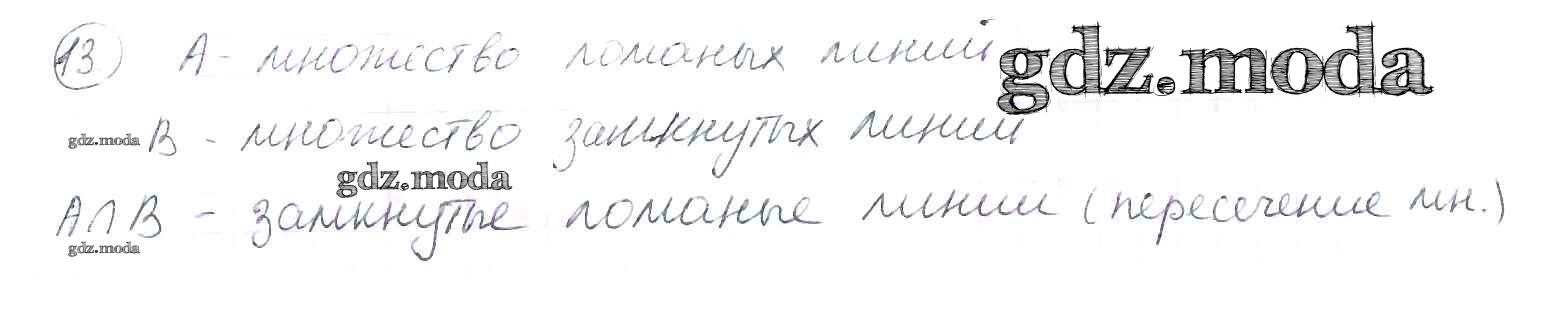 13 А - множество ломаных линий
gdz.moda
gdz.moda В - множество замкнутых линий
gdz.moda
А∩В - замкнутые ломаные линии (пересечение мн.)
gdz.moda